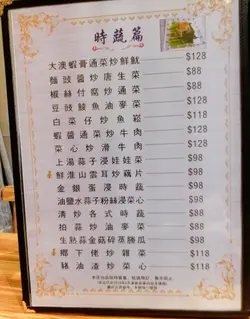 時蔬篇
大漠蝦膏通菜炒鮮魷 $128
麵豉醬炒唐生菜 $88
椒絲付腐炒通菜 $88
豆豉鯪魚油麥菜 $118
白菜仔炒魚崧 $118
蝦醬通菜炒牛肉 $128
菜心炒滑牛肉 $128
上湯蒜子浸娃娃菜 $98
鮮淮山雲耳炒藕片 $98
金銀蛋浸時蔬 $98
油鹽水蒜子粉絲浸菜心 $98
清炒各式時蔬 $88
拍蒜炒油麥菜 $88
生熟蒜金菇碎蒸勝瓜 $98
鄉下佬炒雜菜 $118
豬油渣炒菜心 $118